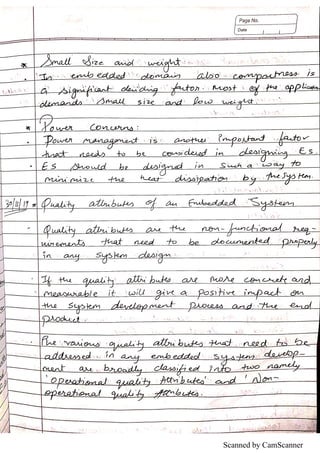 Page No.
Date
* Small Size and weight.
- In embedded domain also compactness is
a significant deciding factor. Most of the applican
demands small size and low weight.
* Power concerns:
- Power management is another important factor
that needs to be considered in designing ES.
- ES should be designed in such a way to
minimize the heat dissipation by the system.
30/11/17 * Quality attributes of an Embedded System
- Quality attributes are the non-functional req-
uirements that need to be documented properly
in any system design
- If the quality attributes are more concrete and
measurable it will give a positive impact on
the system development process and the end
product.
- The various quality attributes that need to be
addressed in any embedded system develop-
ment are broadly classified into two namely
'operational quality Attributes' and 'Non-
operational quality Attributes.
Scanned by CamScanner